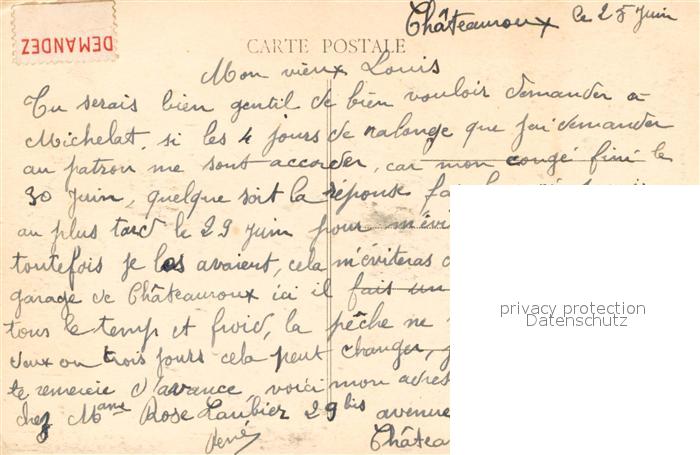 Châteauroux le 25 Juin
DEMANDEZ
CARTE POSTALE
Mon vieux Louis
Tu serais bien gentil de bien vouloir demander à
Michelat, si les 4 jours de ralonge que j'ai demander
au patron me sont accorder, car mon congé fini le
30 Juin, quelque soit la réponse
au plus tard le 29 Juin pour m'évi
toutefois je les avaient, cela m'éviteras
garage de Châteauroux ici il fait un
tous le temp et froid, la pêche ne
deux ou trois jours cela peut changer,
te remercie d'avance, voici mon adres
chez Mame Rose Laubier 29 bis avenue
René Châtea
privacy protection
Datenschutz